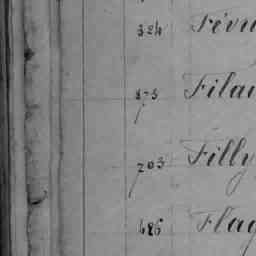 324 Févri
875 Filai
703 Filly
486 Flag